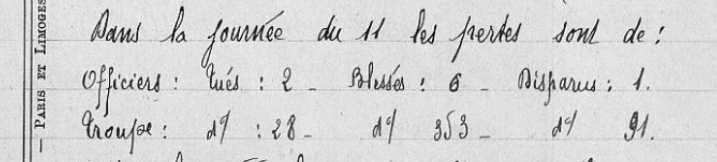 — PARIS ET LIMOGES
Dans la journée du 11 les pertes sont de :
Officiers : tués : 2 - Blessés : 6 - Disparus : 1.
Troupe : d° : 28 - d° 353 - d° 91.